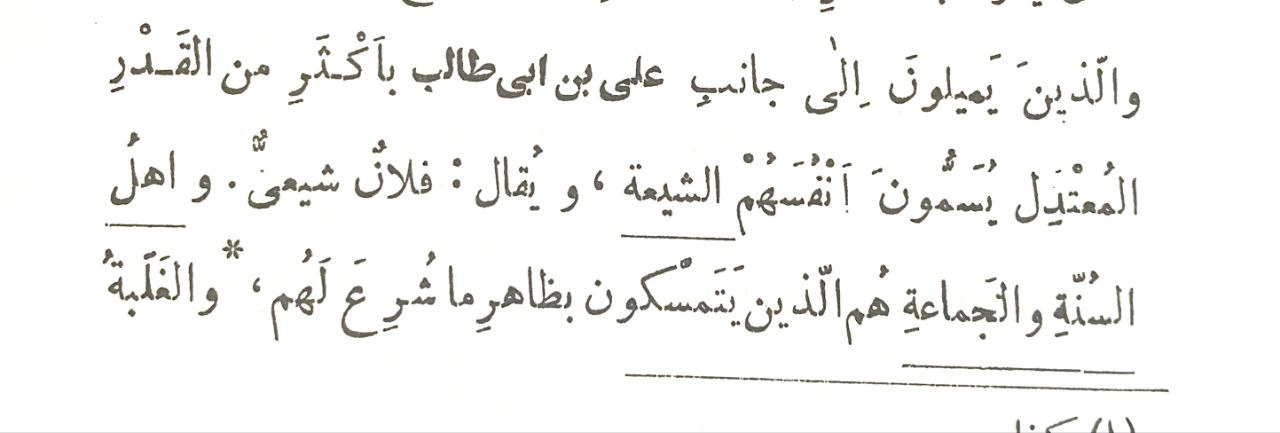 والّذينَ يَميلونَ اِلٰى جانبِ على بن ابى طالب باَكْثَرِ من القَدْرِ
المُعتْدَِل يُسَمُّونَ اَنْفُسَهُمْ الشيعة ، و يُقال : فلانٌ شيعىٌّ . و اهلُ
السُنّةِ والجَماعةِ هُم الّذين يَتَمسْكون بظاهرِ ما شُرِعَ لَهُم ، * والغَلَبةُ